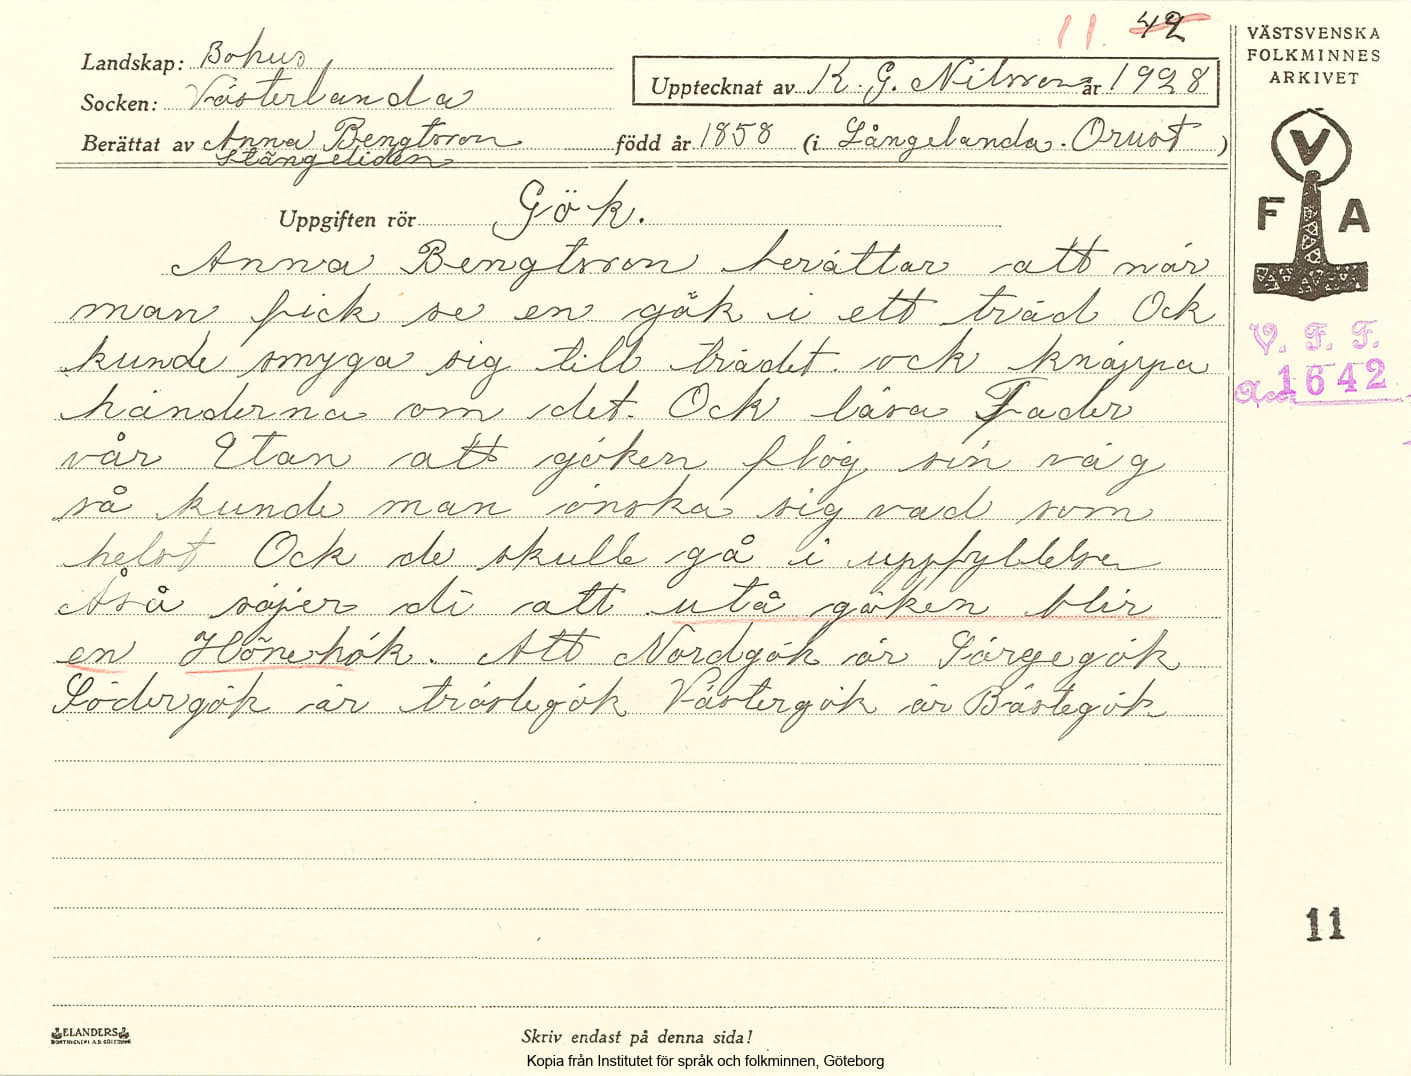 11. 42
Landskap: Bohus
Socken: Västerlanda
Upptecknat av K. G. Nilsson år 1928
Berättat av Anna Bengtsson född år 1858 (i Långelanda. Orust)
Stängeliden
VÄSTSVENSKA
FOLKMINNES
ARKIVET
V
F A
Uppgiften rör Gök.
Anna Bengtsson berättar att når
man fick se en gök i ett träd Ock
kunde smyga sig till trädet ock knäppa
händerna om det. Ock läsa Fader
vår Utan att göken flög sin väg
så kunde man önska sig vad som
helst Ock de skulle gå i uppfyllelse
Åså säjer di att utå göken blir
en Hönehök. Att Nordgök är Sörgegök
Södergök är tröstegök Västergök är Bästegök
V. F. F.
Acc. 1642
11
ELANDERS
BOKTRYCKERI A.B. GÖTEBORG
Skriv endast på denna sida!
Kopia från Institutet för språk och folkminnen, Göteborg